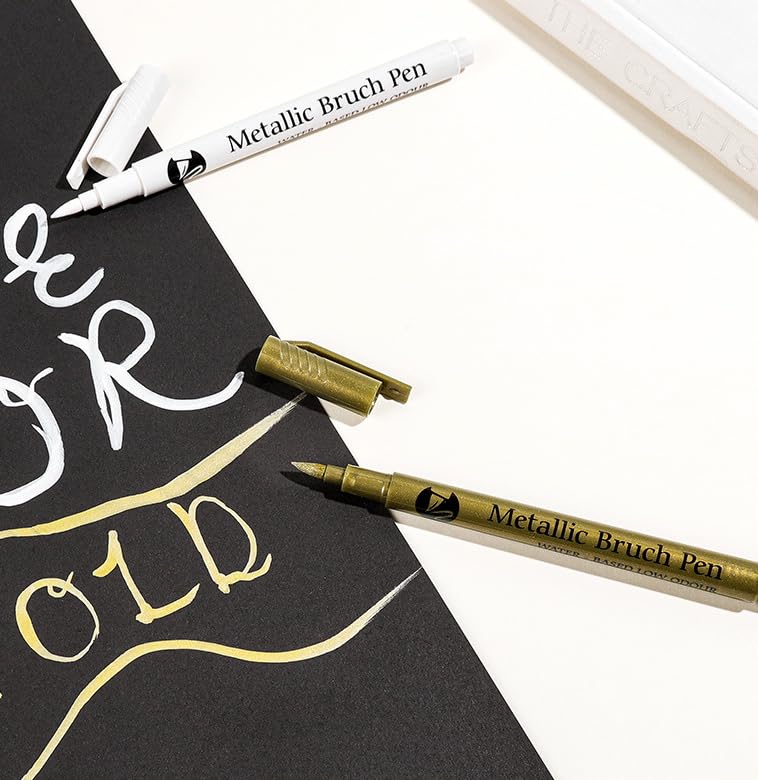 THE CRAFTS
Metallic Bruch Pen
WATER - BASED LOW ODOUR
&
OR
OLD
Metallic Bruch Pen
WATER - BASED LOW ODOUR